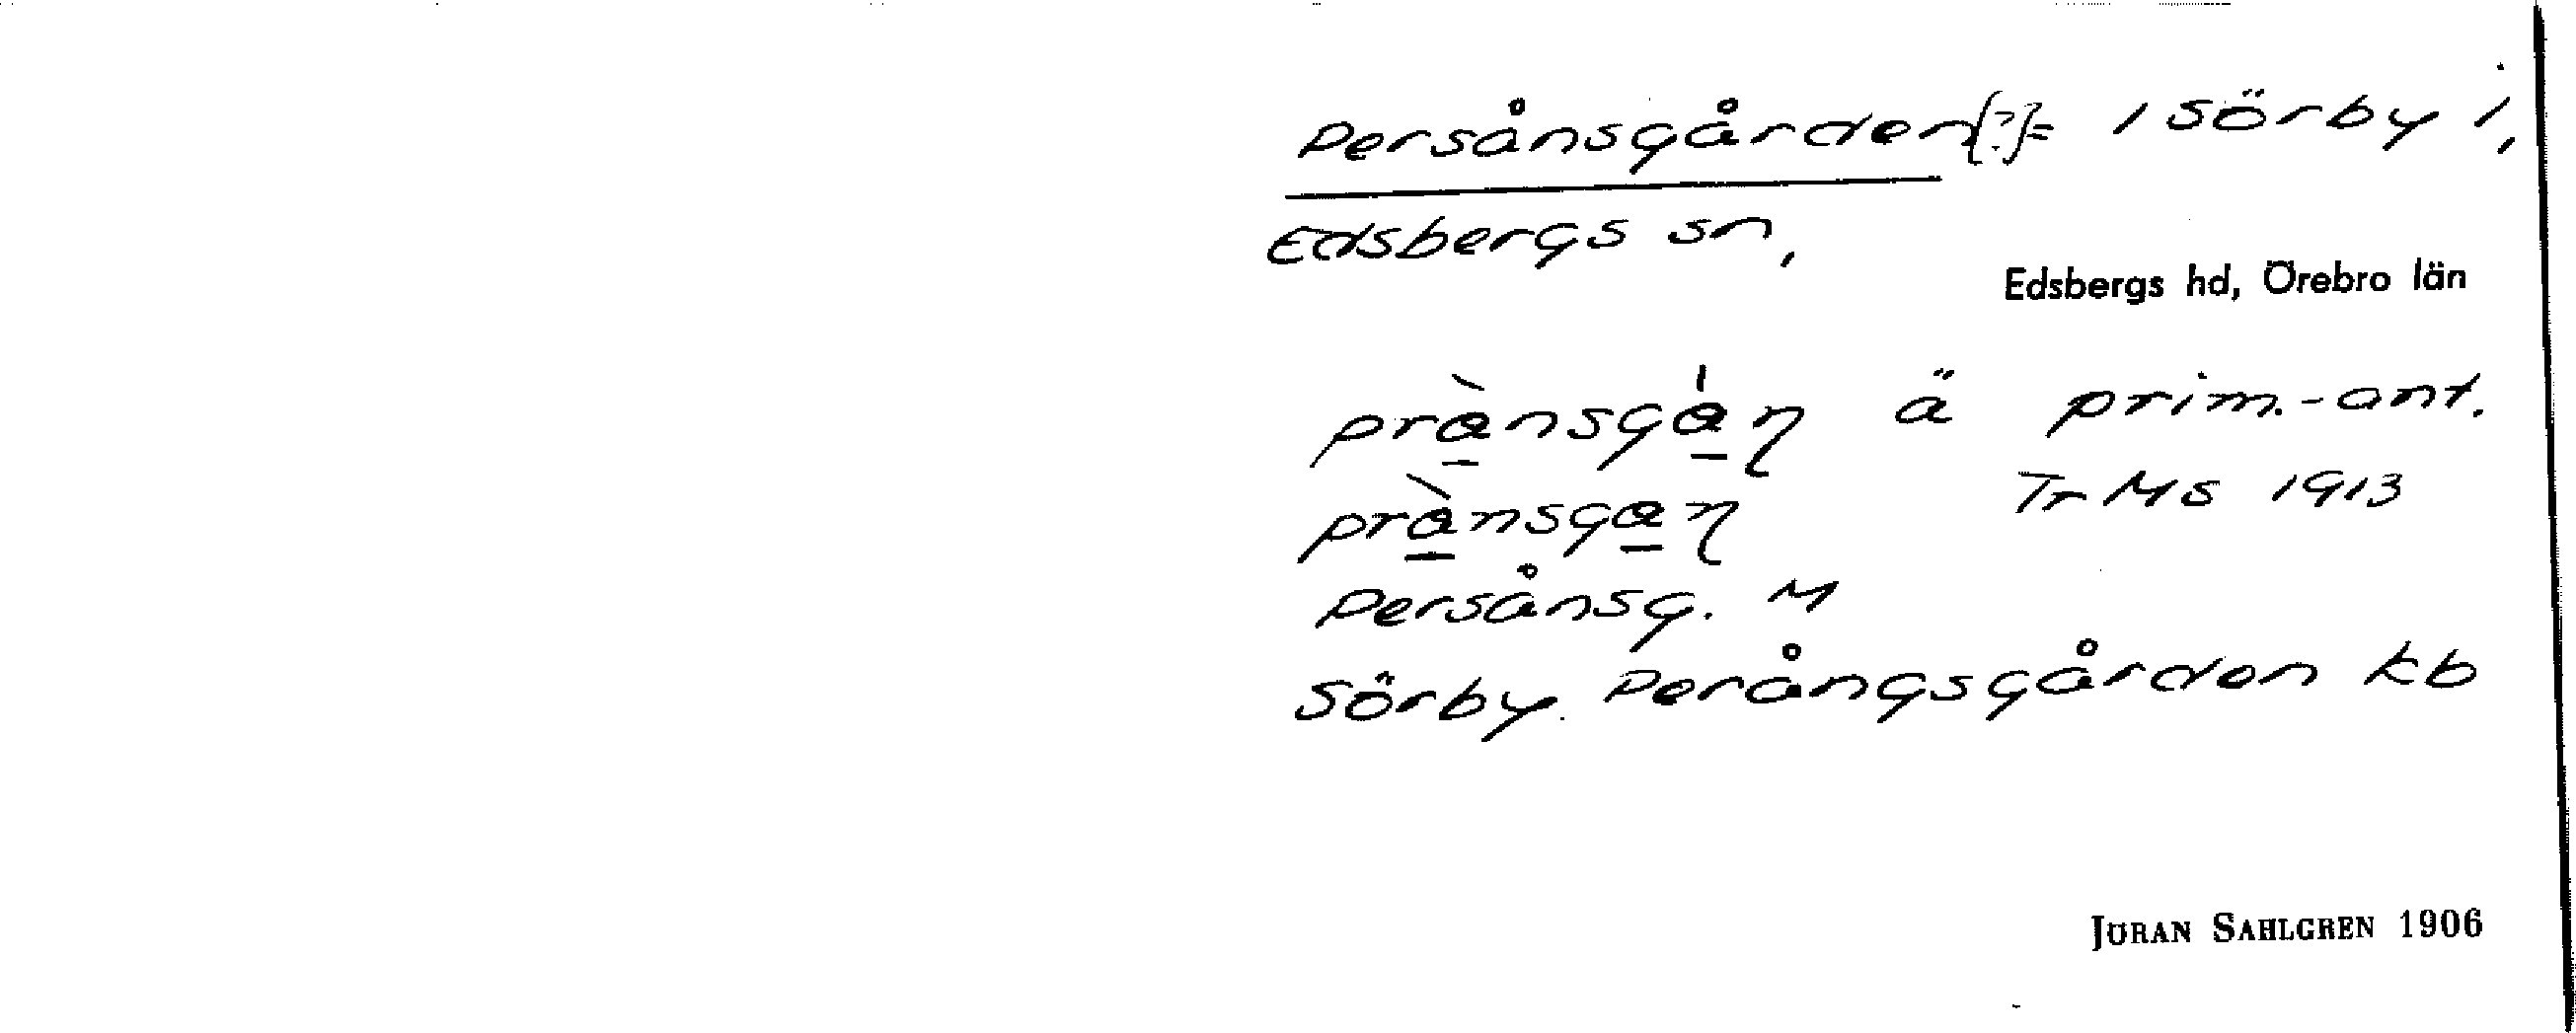 Persånsgården [?] = 1 Sörby 1,
Edsbergs sn,
Edsbergs hd, Örebro län
prànsgáɳ ä prim.-ant.
prànsgaɳ Tr MS 1913
Persånsg. M
Sörby. Perångsgården kb
JÖRAN SAHLGREN 1906